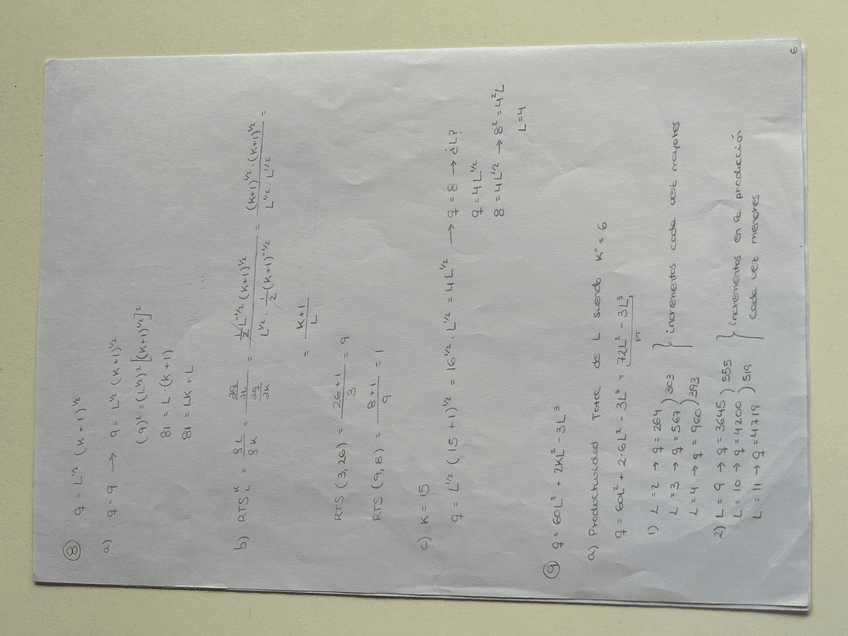 ⑧ q = L^1/2 (K+1)^1/2
a) q = 9 → 9 = L^1/2 (K+1)^1/2
(9)^2 = (L^1/2)^2 [(K+1)^1/2]^2
81 = L (K+1)
81 = LK + L
b) RTS^K_L = δL/δK = (∂q/∂L)/(∂q/∂K) = (1/2 L^-1/2 (K+1)^1/2)/(L^1/2 · 1/2 (K+1)^-1/2) = ((K+1)^1/2 · (K+1)^1/2)/(L^1/2 · L^1/2) =
= (K+1)/L
RTS (3,26) = (26+1)/3 = 9
RTS (9,8) = (8+1)/9 = 1
c) K = 15
q = L^1/2 (15+1)^1/2 = 16^1/2 · L^1/2 = 4L^1/2 → q = 8 → ¿L?
q = 4L^1/2
8 = 4L^1/2 → 8^2 = 4^2 L
L = 4
⑨ q = 60L^2 + 2KL^2 - 3L^3
a) Productividad Total de L siendo K" = 6
q = 60L^2 + 2·6L^2 - 3L^3 = 72L^2 - 3L^3
PT
1) L = 2 → q = 264
L = 3 → q = 567 ) 303
L = 4 → q = 960 ) 393 } incrementos cada vez mayores
2) L = 9 → q = 3645
L = 10 → q = 4200 ) 555 } incrementos en la producción
L = 11 → q = 4719 ) 519 cada vez menores
6